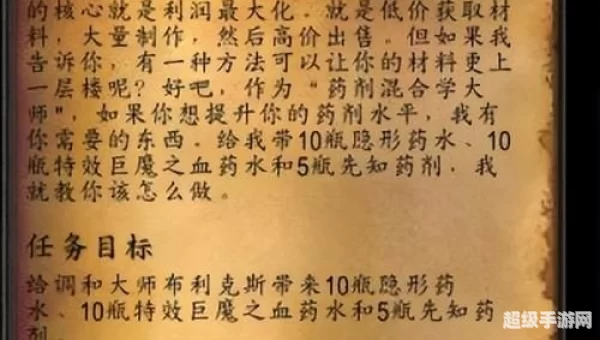 的核心就是利润最大化。就是低价获取材
料，大量制作，然后高价出售。但如果我
告诉你，有一种方法可以让你的材料更上
一层楼呢？好吧，作为“药剂混合学大
师"，如果你想提升你的药剂水平，我有
你需要的东西。给我带10瓶隐形药水、10
瓶特效巨魔之血药水和5瓶先知药剂，我
就教你该怎么做。
任务目标
给调和大师布利克斯带来10瓶隐形药
水、10瓶特效巨魔之血药水和5瓶先知药
剂.
超级手游网